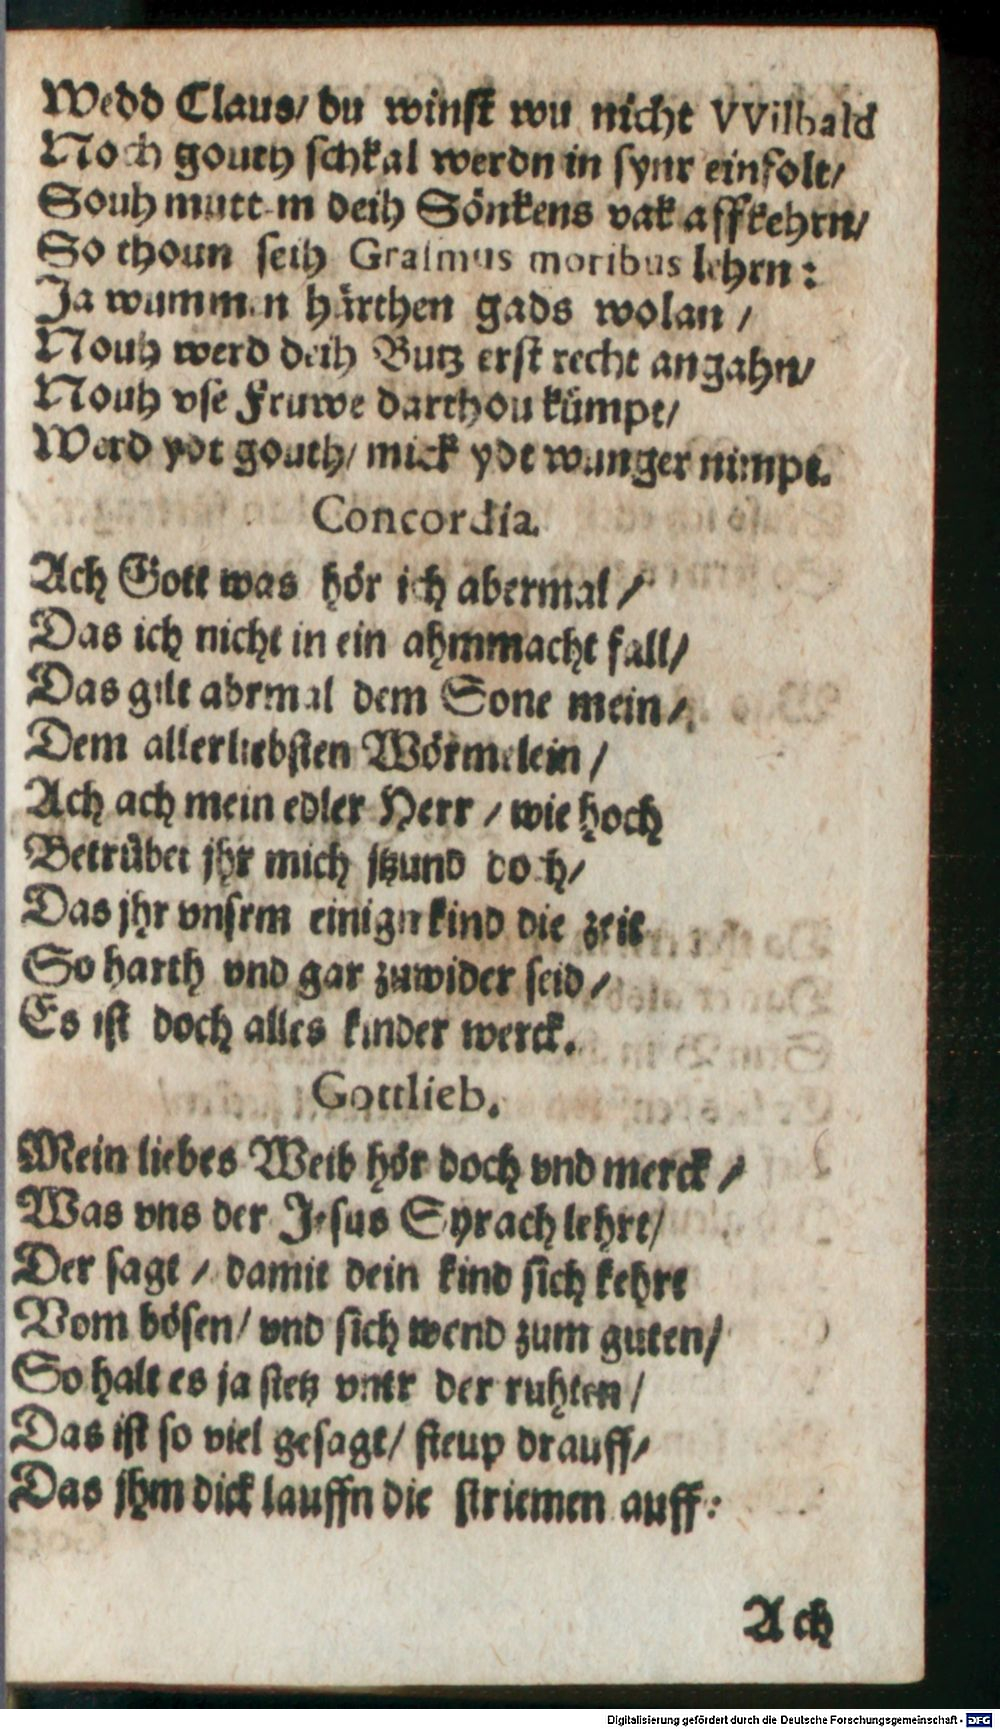 Wedd Claus/ du winst wu nicht VVilbald
Noch gouth schkal werdn in synr einfolt/
Souh mutt m deih Sönkens vak affkehrn/
So thoun seih Grasmus moribus lehrn:
Ja wummen härthen gads wolan /
Nouh werd deih Butz erst recht angahn/
Nouh vse Fruwe darthou kümpt/
Werd ydt gouth/ mick ydt wunger nimpt.
Concordia.
Ach Gott was hör ich abermal /
Das ich nicht in ein ahmmacht fall/
Das gilt abrmal dem Sone mein /
Dem allerliebsten Wörmelein /
Ach ach mein edler Herr / wie hoch
Betrübet jhr mich jtzund doch/
Das jhr vnsrm einign kind die zeit
So harth vnd gar zuwider seid /
Es ist doch alles kinder werck.
Gottlieb.
Mein liebes Weib hör doch vnd merck /
Was vns der Jesus Syrach lehrt/
Der sagt / damit dein kind sich kehrt
Vom bösen/ vnd sich wend zum guten/
So halt es ja stetz vntr der ruhten /
Das ist so viel gesagt/ steup drauff/
Das jhm dick lauffn die striemen auff:
Ach
Digitalisierung gefördert durch die Deutsche Forschungsgemeinschaft - DFG